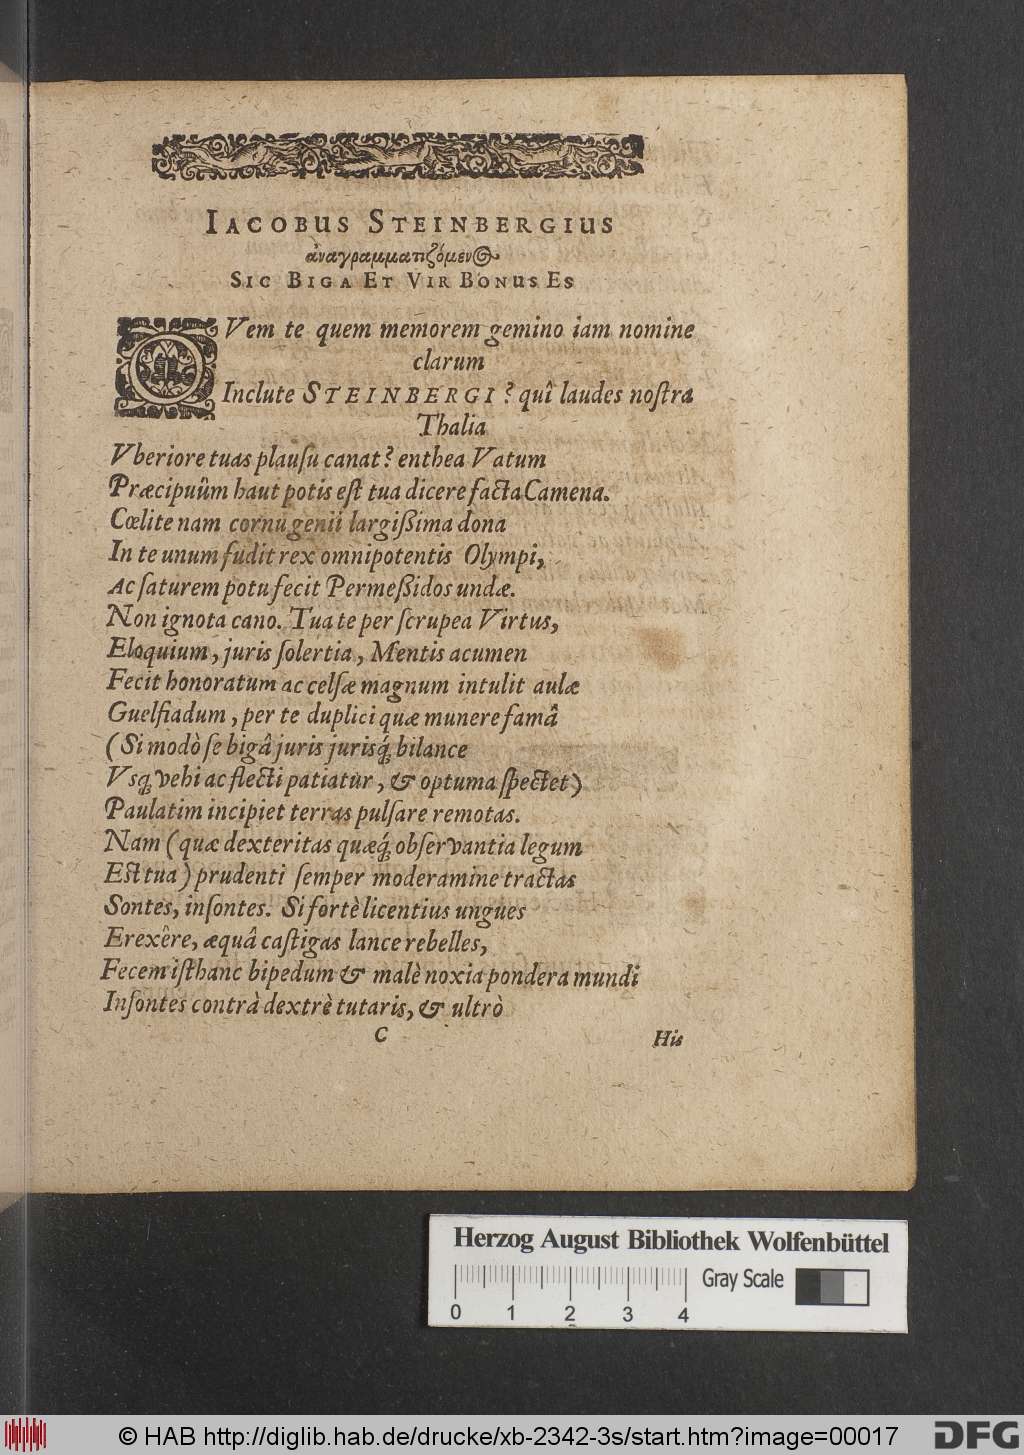 IACOBUS STEINBERGIUS
ἀναγραμματιζόμενος
SIC BIGA ET VIR BONUS ES
QVem te quem memorem gemino iam nomine
clarum
Inclute STEINBERGI? quî laudes noſtra
Thalia
Vberiore tuas plauſu canat? enthea Vatum
Præcipuûm haut potis eſt tua dicere facta Camena.
Cœlite nam cornu genii largißima dona
In te unum fudit rex omnipotentis Olympi,
Ac ſaturem potu fecit Permeßidos undæ.
Non ignota cano. Tua te per ſcrupea Virtus,
Eloquium, juris ſolertia, Mentis acumen
Fecit honoratum ac celſæ magnum intulit aulæ
Guelfiadum, per te duplici quæ munere famâ
(Si modò ſe bigâ juris jurisq́; bilance
Vsq; vehi ac flecti patiatur, & optuma ſpectet)
Paulatim incipiet terras pulſare remotas.
Nam (quæ dexteritas quæq́; obſervantia legum
Eſt tua) prudenti ſemper moderamine tractas
Sontes, inſontes. Si fortè licentius ungues
Erexêre, æquâ caſtigas lance rebelles,
Fecem iſthanc bipedum & malè noxia pondera mundi
Inſontes contrà dextrè tutaris, & ultrò
C
His
Herzog August Bibliothek Wolfenbüttel
Gray Scale
0 1 2 3 4
© HAB http://diglib.hab.de/drucke/xb-2342-3s/start.htm?image=00017
DFG